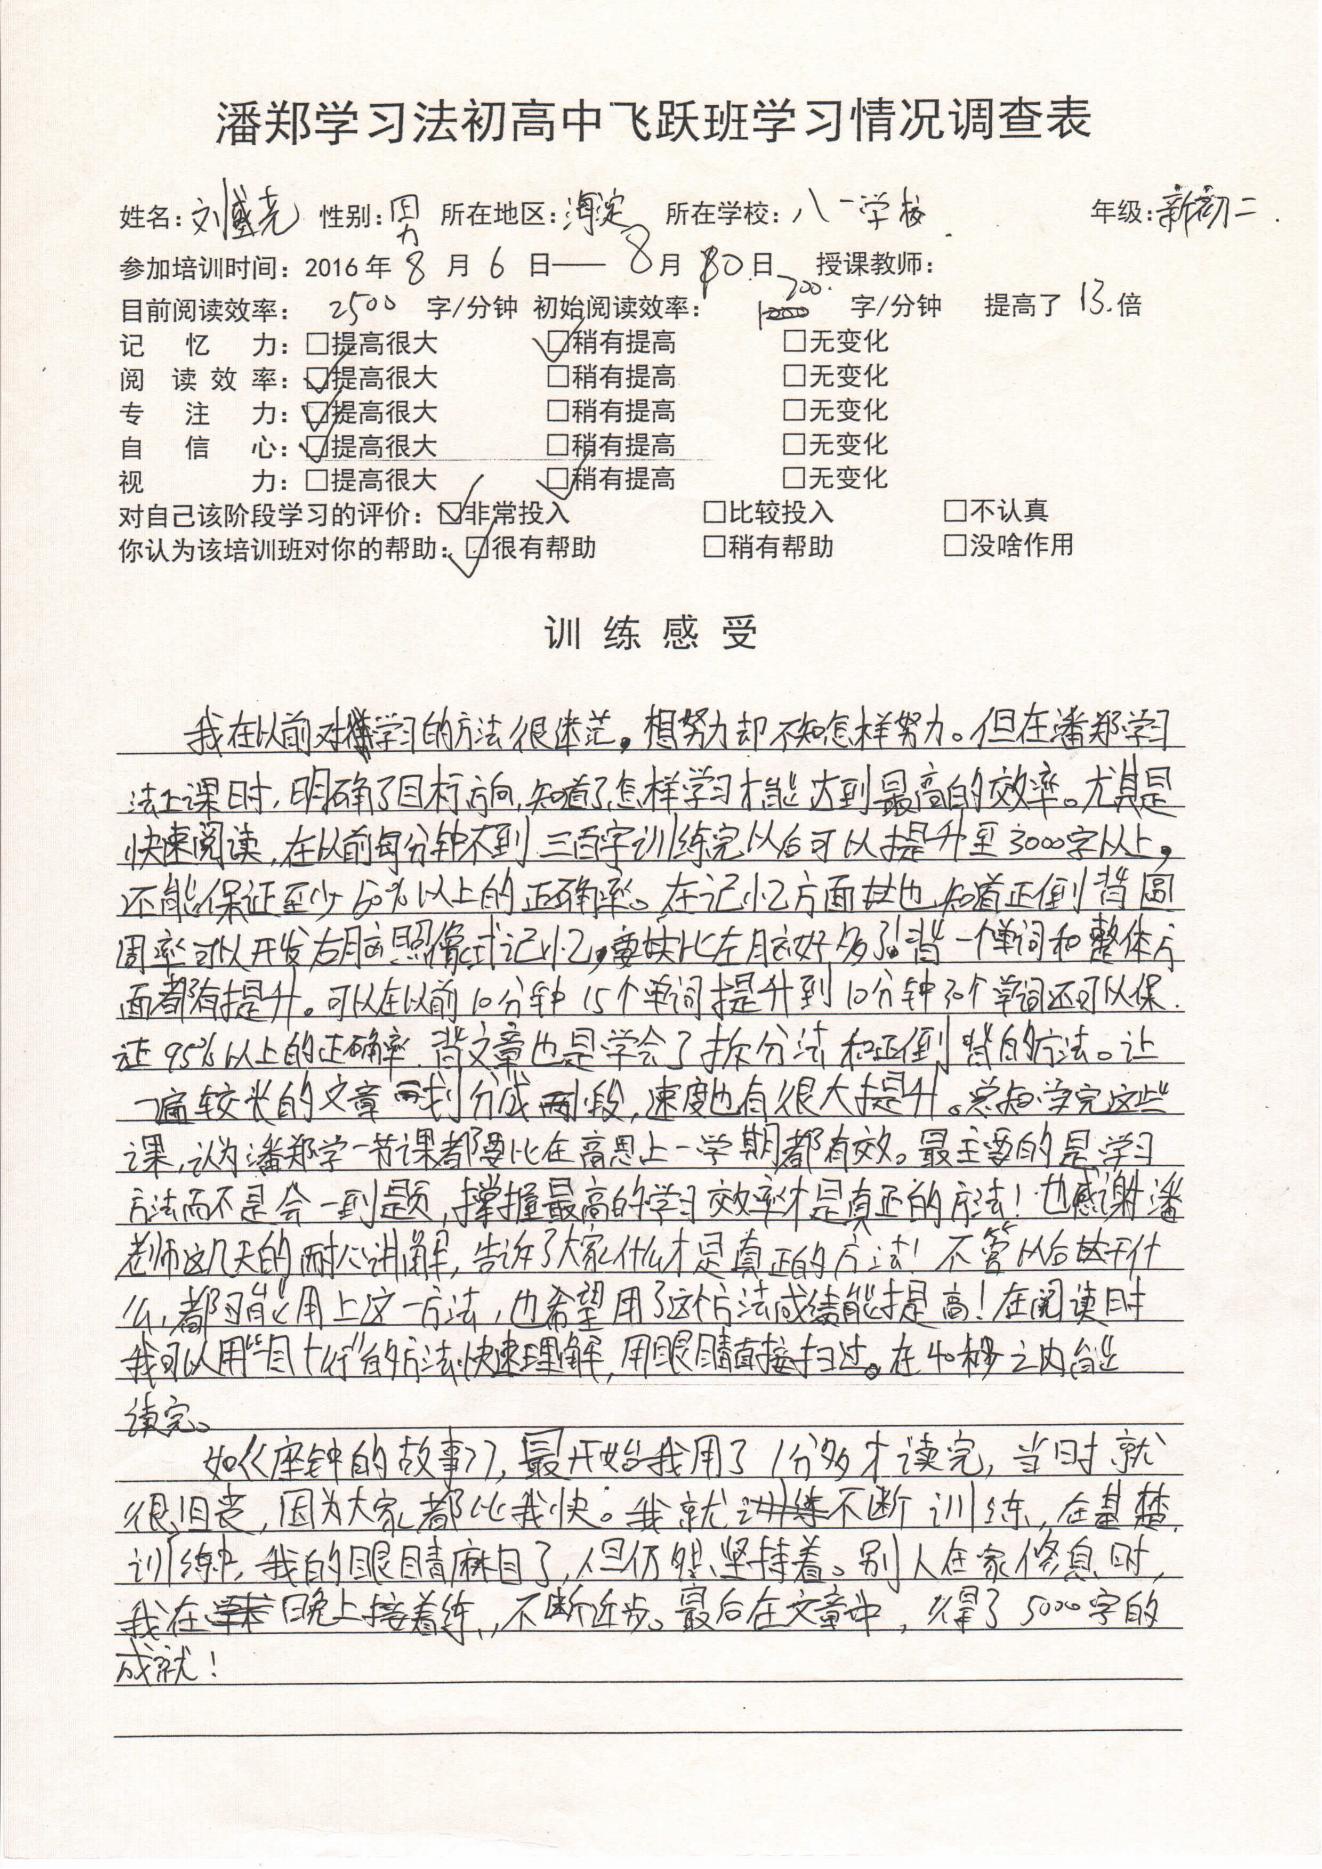 潘郑学习法初高中飞跃班学习情况调查表
姓名:刘盛尧 性别:男 所在地区:海淀 所在学校:八一学校 年级:新初二.
参加培训时间:2016年8月6日——8月10日 授课教师:
目前阅读效率: 2500 字/分钟 初始阅读效率: 200. 字/分钟 提高了13.倍
记忆力:□提高很大 □稍有提高 □无变化
阅读效率:□提高很大 □稍有提高 □无变化
专注力:□提高很大 □稍有提高 □无变化
自信心:□提高很大 □稍有提高 □无变化
视力:□提高很大 □稍有提高 □无变化
对自己该阶段学习的评价:□非常投入 □比较投入 □不认真
你认为该培训班对你的帮助:□很有帮助 □稍有帮助 □没啥作用
训练感受
我在以前对学习的方法很迷茫。想努力却不知怎样努力。但在潘郑学习
法上课时,明确了目标方向,知道了怎样学习才能达到最高的效率。尤其是
快速阅读,在以前每分钟不到三百字训练完以后可以提升至3000字以上,
还能保证至少60%以上的正确率。在记忆方面也知道正倒背圆
周率可以开发右脑照像式记忆,要比左脑好多了!背一个单词和整体方
面都有提升。可以在以前10分钟15个单词提升到10分钟30个单词还可以保
证95%以上的正确率.背文章也是学会了拆分法和正倒背的方法。让
一篇较长的文章划分成小段,速度也有很大提升。总知学完这些
课,认为潘郑学一节课都要比在高思上一学期都有效。最主要的是学习
方法而不是会一到题,掌握最高的学习效率才是真正的方法!也感谢潘
老师这几天的耐心讲解,告诉了大家什么才是真正的方法!不管以后干什
么,都可能用上这一方法,也希望用了这个方法成绩能提高!在阅读时
我可以用“一目十行”的方法快速理解,用眼睛直接扫过。在40秒之内能
读完。
如《座钟的故事》,最开始我用了1分多才读完,当时就
很沮丧,因为大家都比我快。我就不断训练,在基楚
训练中,我的眼睛麻目了,但仍然坚持着。别人在家修息时,
我在晚上接着练,不断近步。最后在文章中,得了5000字的
成就!